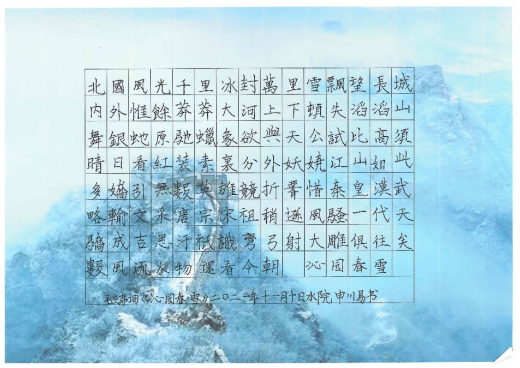 北國風光千里冰封萬里雪飄望長城
内外惟餘莽莽大河上下頓失滔滔山
舞銀虵原馳蠟象欲與天公試比高須
晴日看紅装素裹分外妖嬈江山如此
多嬌引無數英雄競折腰惜秦皇漢武
略輸文采唐宗宋祖稍遜風騷一代天
驕成吉思汗祇識彎弓射大雕俱往矣
數風流人物還看今朝 沁园春雪
毛主席词《沁园春·雪》二〇二一年十一月十日水院 申川易书